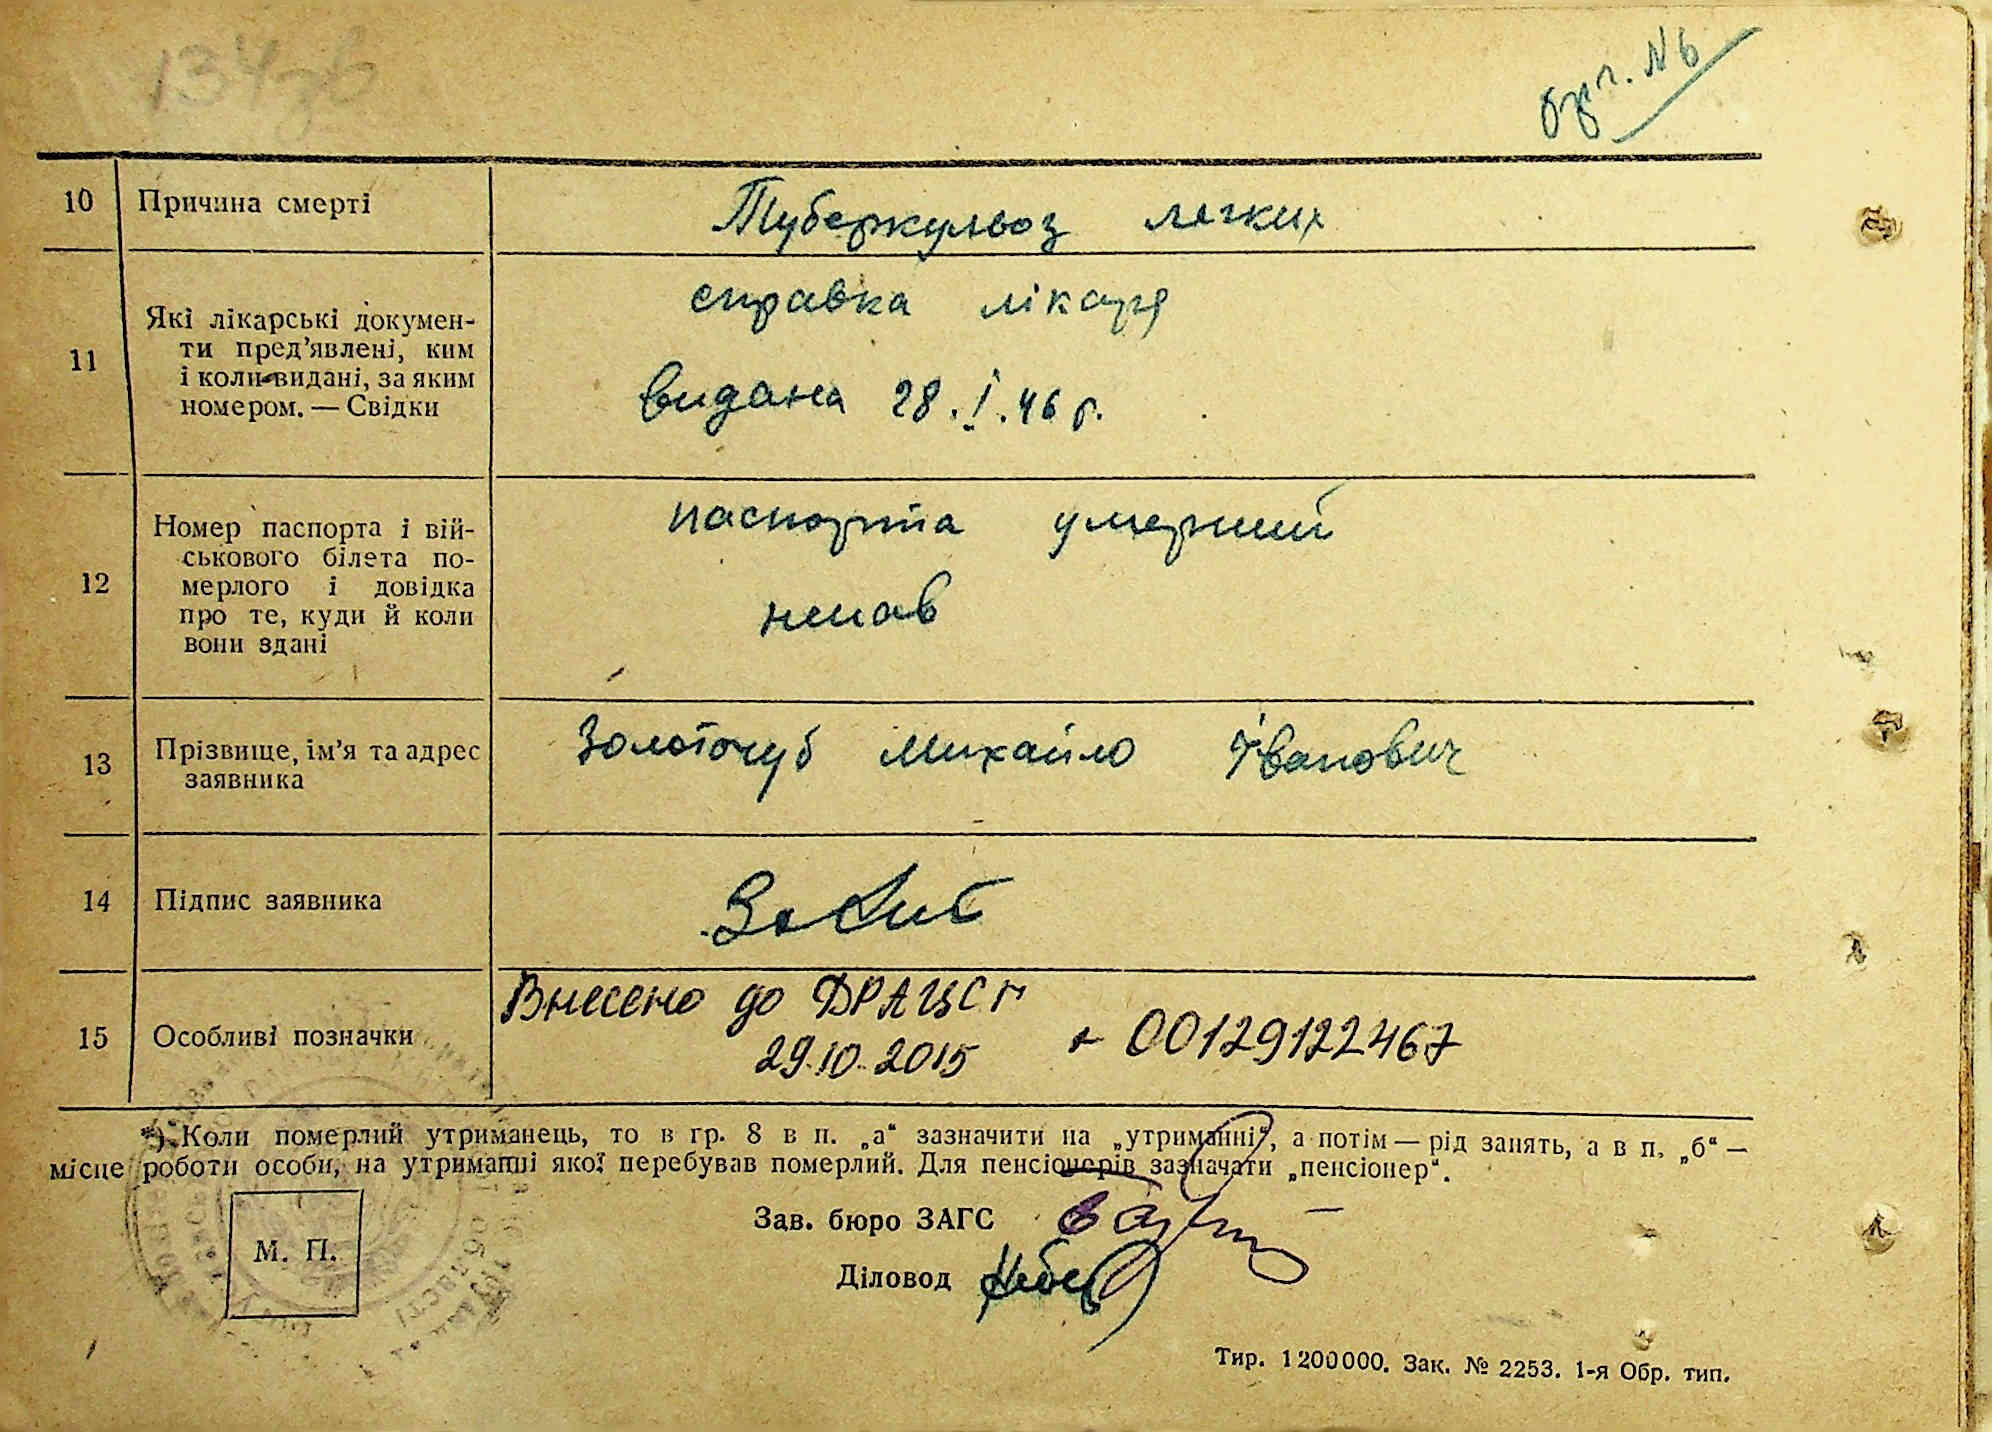 134зв
обр. N6
10 Причина смерті Туберкульоз легких
11 Які лікарські докумен-
ти пред'явлені, ким
і коли видані, за яким
номером. — Свідки
справка лікаря
видана 28.I.46 р.
12 Номер паспорта і вій-
ськового білета по-
мерлого і довідка
про те, куди й коли
вони здані
паспорта умерший
немав
13 Прізвище, ім'я та адрес
заявника
Золоточуб Михайло Іванович
14 Підпис заявника
15 Особливі позначки
Внесено до ДРАЦСГ
29.10.2015 00129122467
*) Коли померлий утриманець, то в гр. 8 в п. „а“ зазначити на „утриманні“, а потім — рід занять, а в п. „б“ —
місце роботи особи, на утриманні якої перебував померлий. Для пенсіонерів зазначати „пенсіонер“.
Зав. бюро ЗАГС
М. П.
Діловод
Тир. 1200000. Зак. № 2253. 1-я Обр. тип.